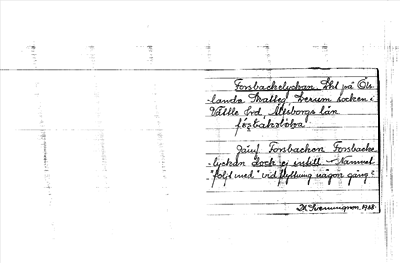 Forsbackelyckan. Lht på Öls-
landa Skatteg Lerum socken i
Vättle hd, Älvsborgs län
Jämf Forsbacken Forsbacke-
lyckan dock ej intill – Namnet
"följt med" vid flyttning någon gång?
1968